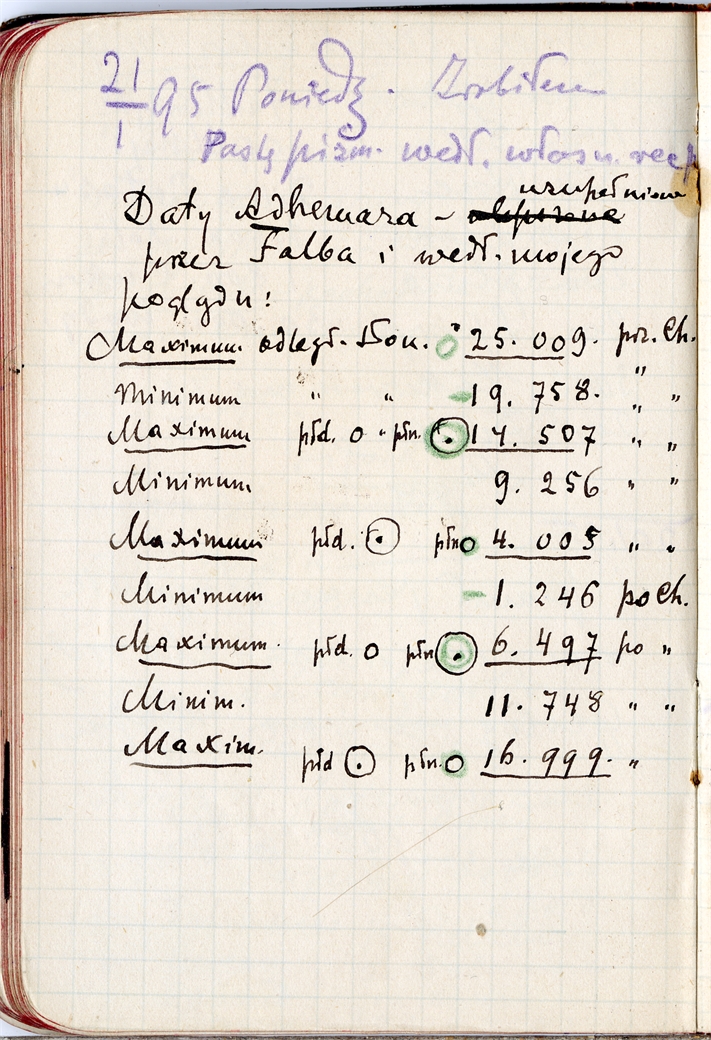 21/1 95 Poniedz. Zrobiłem
Pastę piśm. wedł. własn. recp
Daty Adhemara - uzupełnione
przez Falba i wedł. mojego
poglądu:
Maximum odległ. Słon. 25.009. prz. Ch.
Minimum " " 19.758. " "
Maximum płd. o " płn. ⊙ 14.507 " "
Minimum 9.256 " "
Maximum płd. ⊙ płn o 4.005 " "
Minimum 1.246 po Ch.
Maximum płd. o płn ⊙ 6.497 po "
Minim. 11.748 " "
Maxim. płd ⊙ płn. o 16.999. "